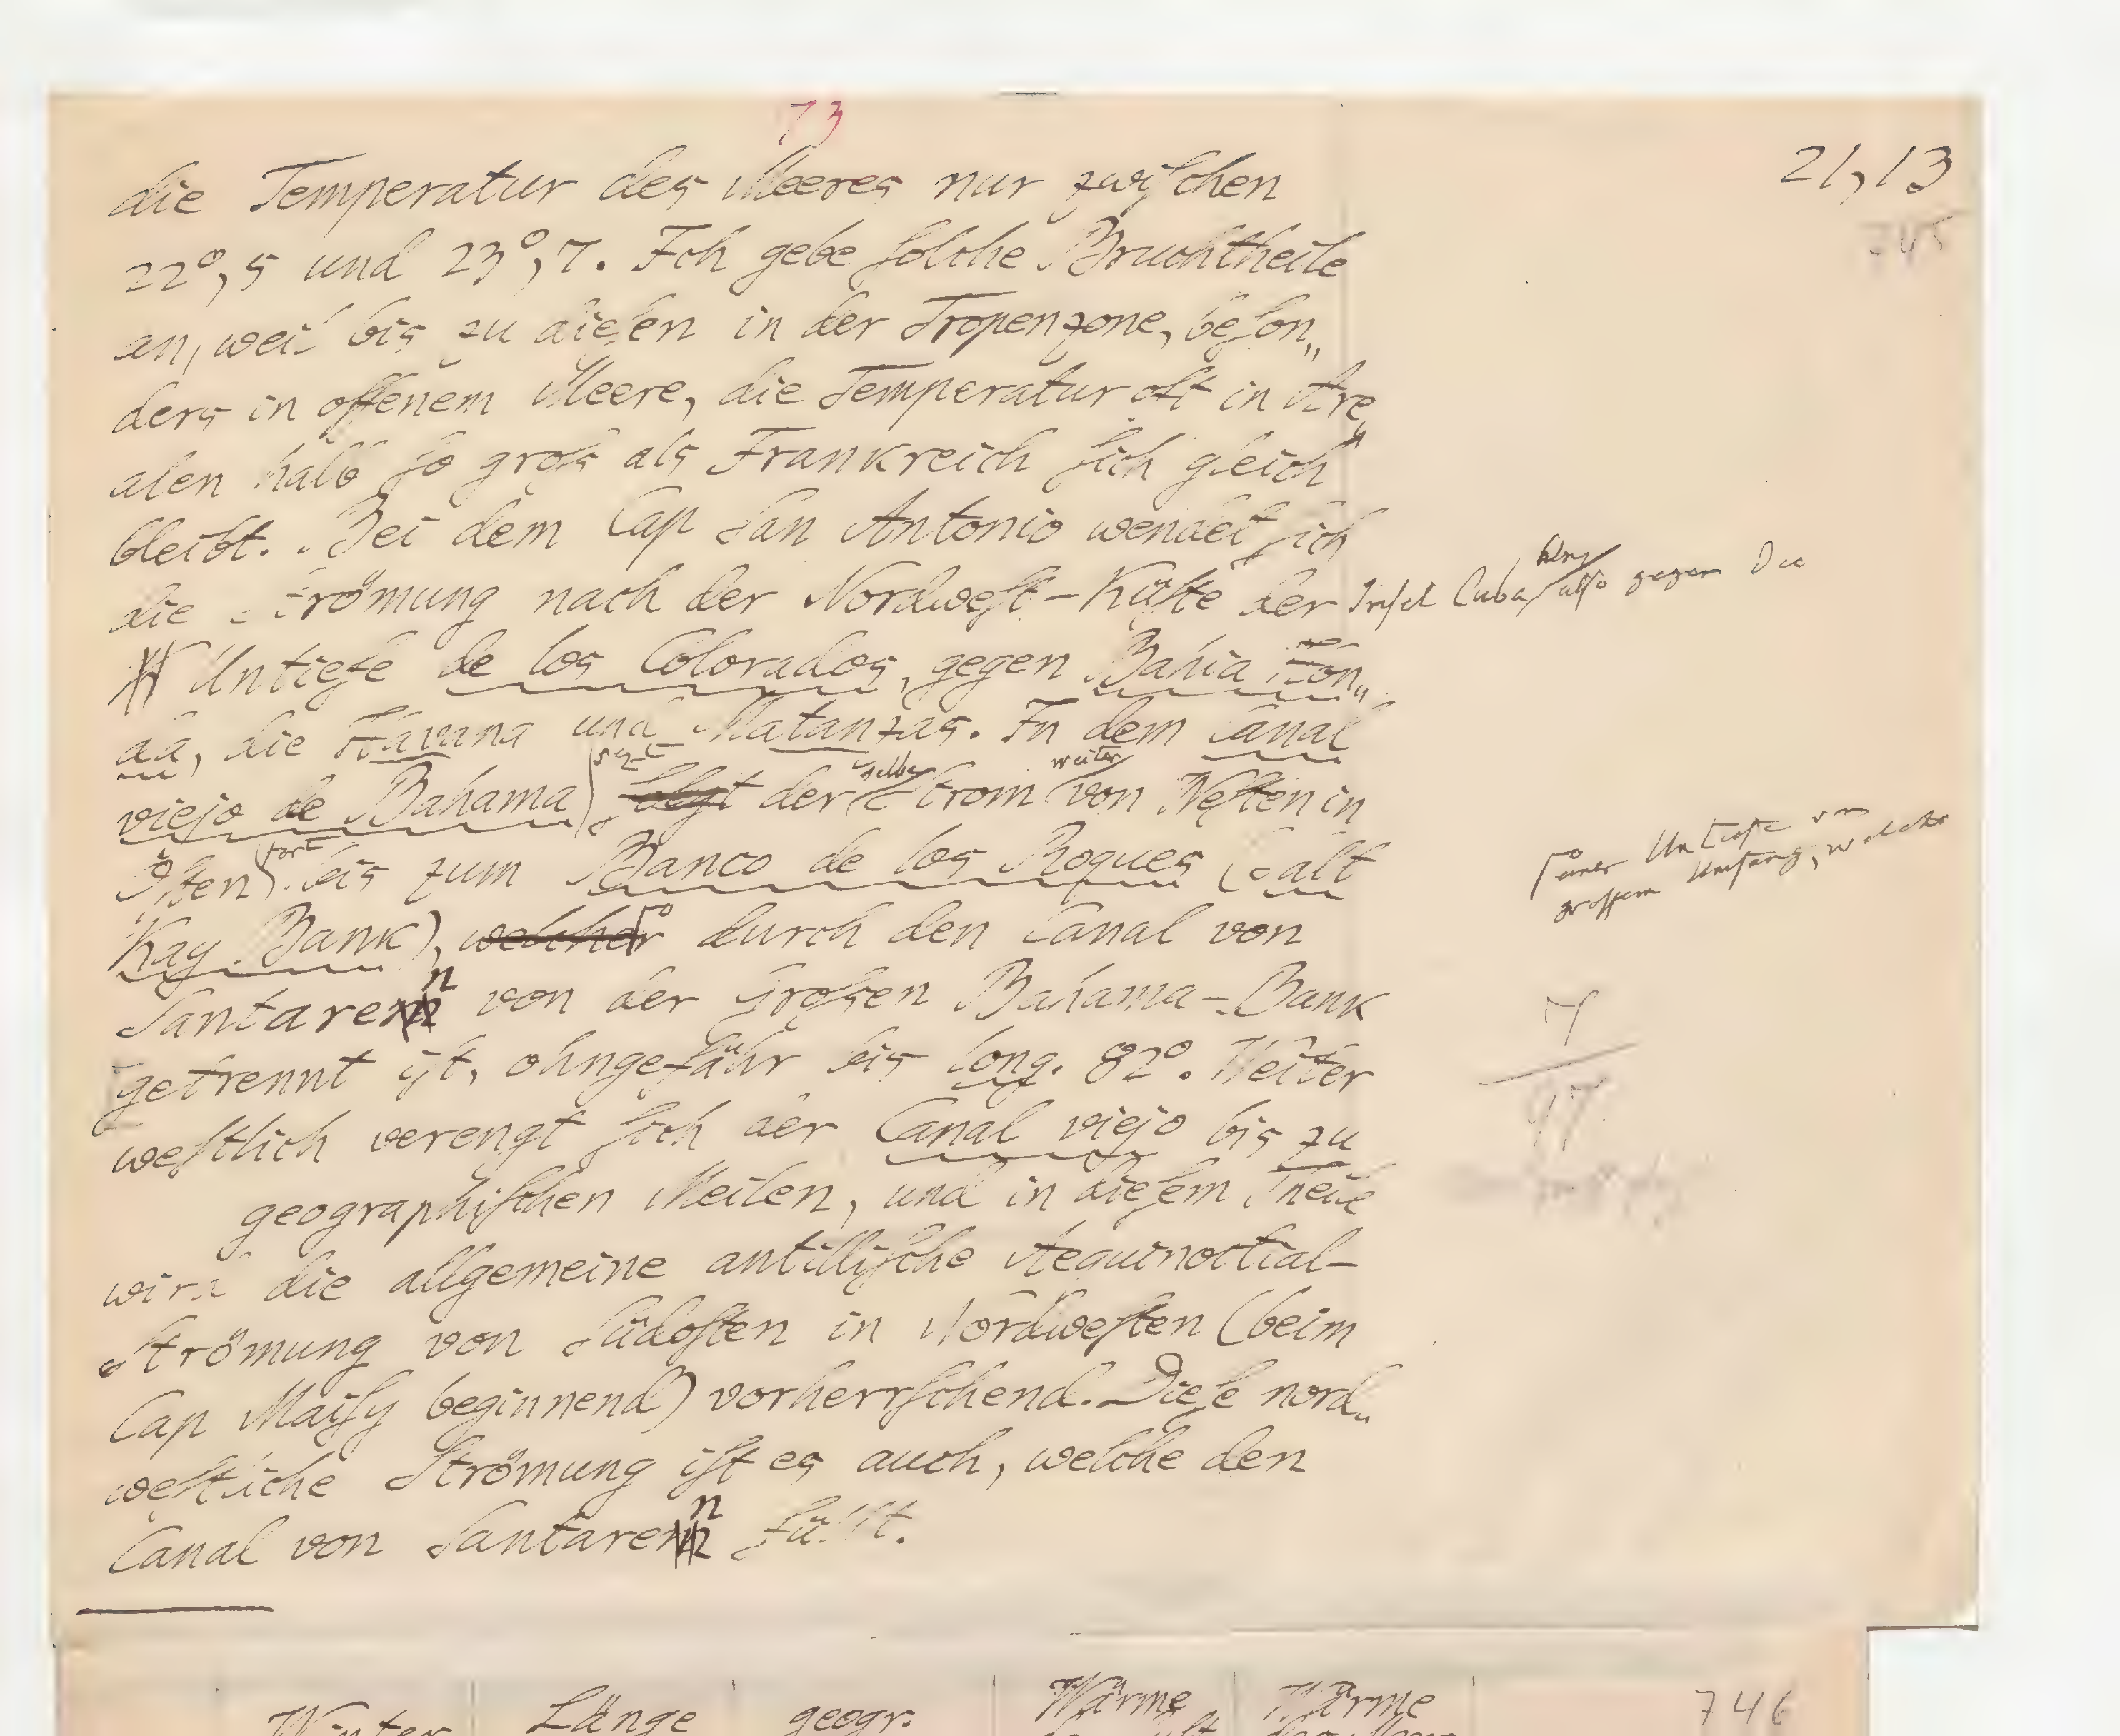 73
21,13
745
die Temperatur des Meeres nur zwiſchen
22°,5 und 23°,7. Ich gebe ſolche Bruchtheile
an, weil bis zu dieſen in der Tropenzone, beſon„
ders in offenem Meere, die Temperatur oft in Are„
alen halb ſo groſs als Frankreich ſich gleich
bleibt. Bei dem Cap San Antonio wendet ſich
die Strömung nach der Nordweſt-Küſte der Inſel Cuba hin, alſo gegen die
Untiefe de los Colorados, gegen Bahia Hon„
da, die Havana und Matanzas. In dem Canal
viejo de Bahama ſezt der ſelbe Strom weiter von Weſten in
Oſten fort bis zum Banco de los Roques (Salt
einer Untiefe von
groſſem Umfang, welche
Kay Bank), welcher durch den Canal von
Santaren von der Groſsen Bahama-Bank
getrennt iſt, ohngefähr bis long. 82°. Weiter
weſtlich verengt ſich der Canal viejo bis zu
geographiſchen Meilen, und in dieſem Theile
wird die allgemeine antilliſche Aequinoctial-
Strömung von Südoſten in Nordweſten (beim
Cap Maiſy beginnend) vorherrſchend. Dieſe nord„
weſtliche Strömung iſt es auch, welche den
Canal von Santaren füllt.
Winter Länge geogr. Wärme Wärme
746